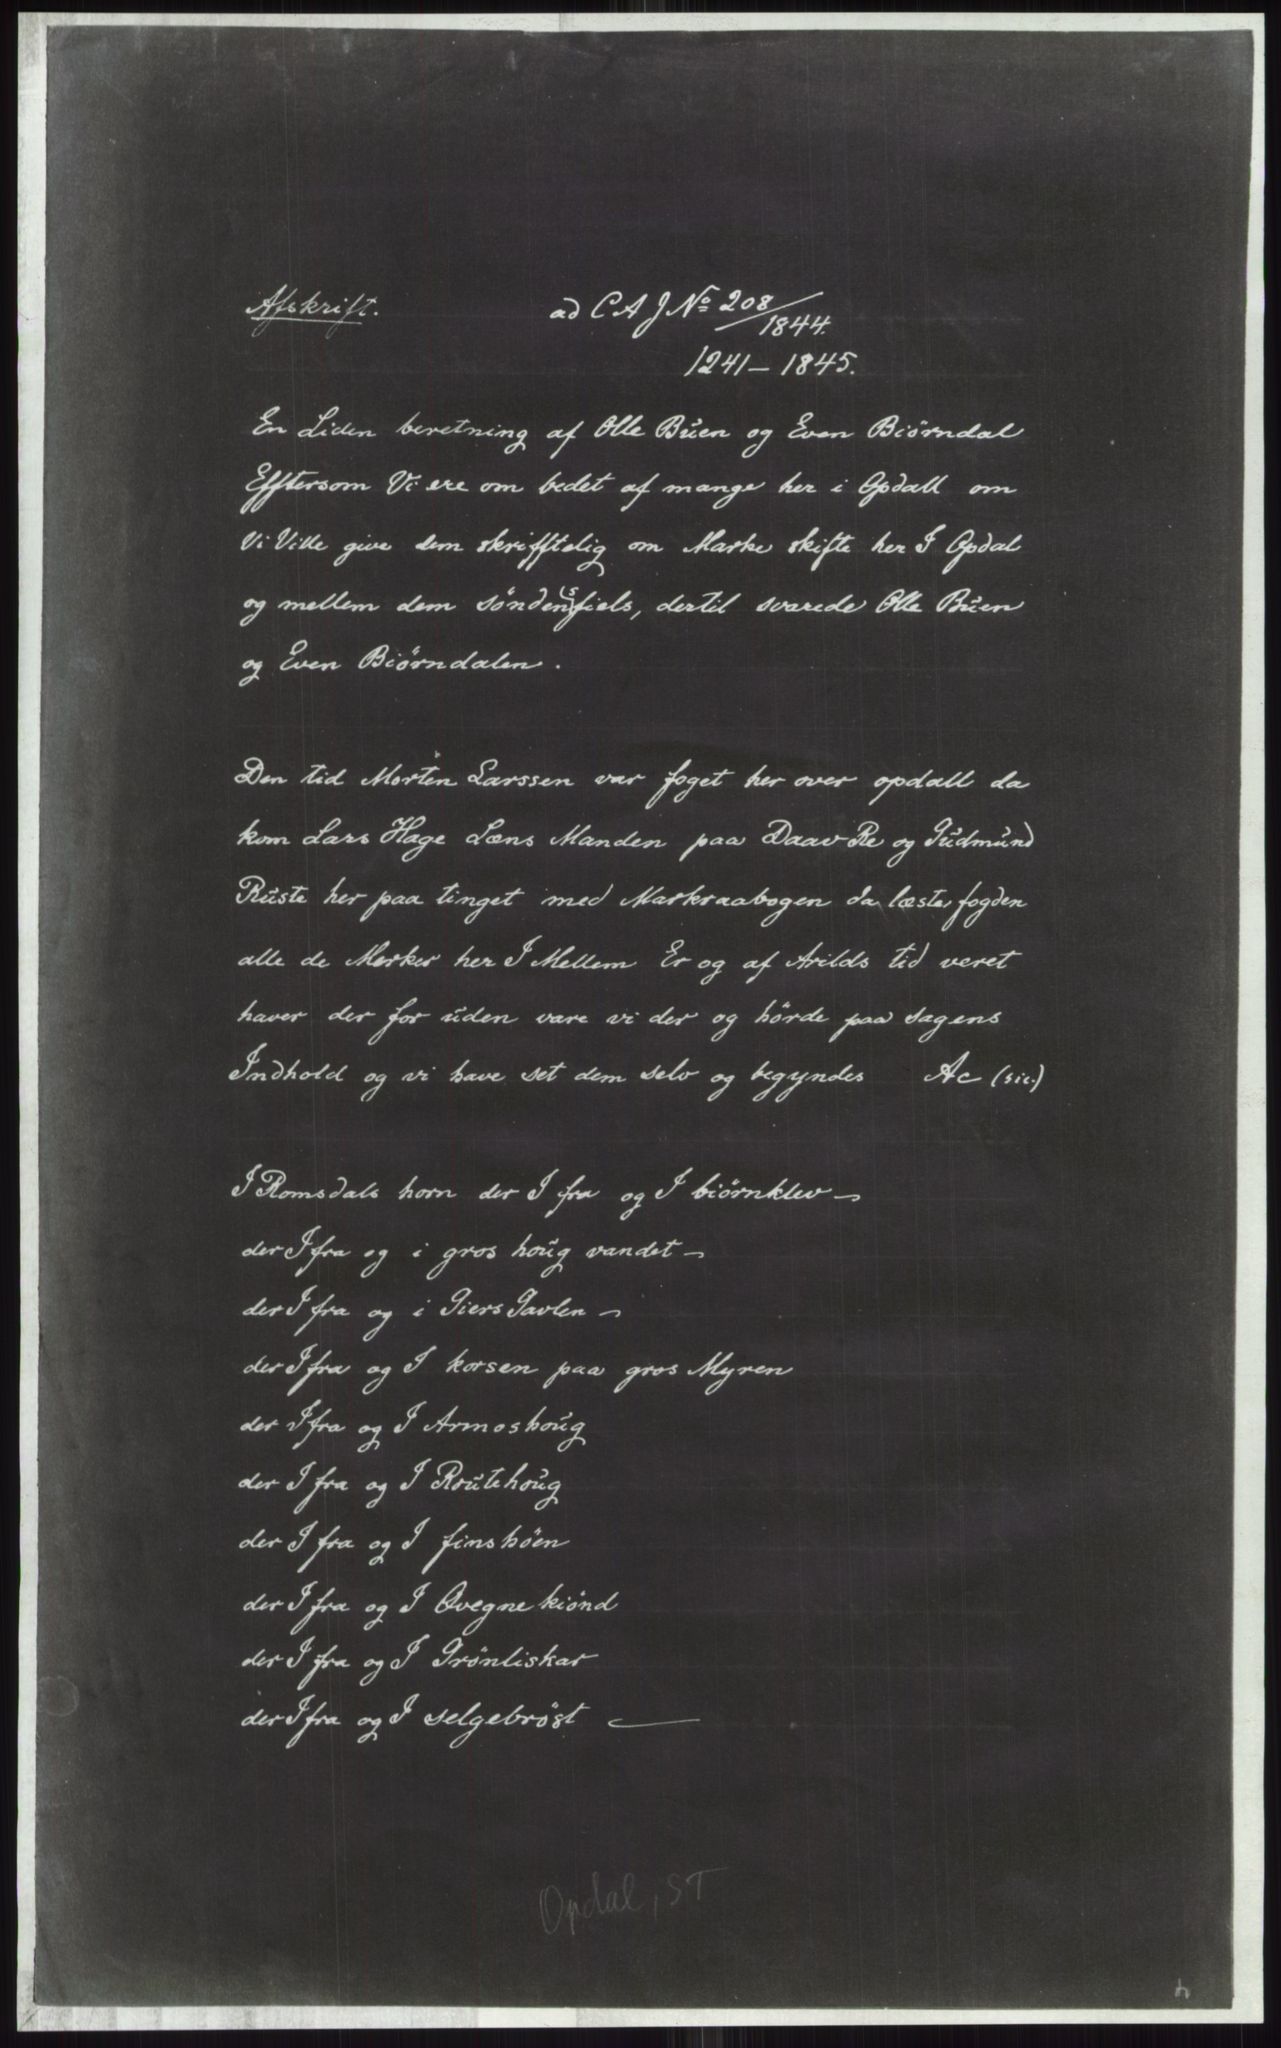 Afskrift. ad C A J No 208/1844.
1241 – 1845.
En Liden beretning af Olle Buen og Even Biörndal
Efftersom Vi ere om bedet af mange her i Opdall om
Vi Ville give dem skrifftelig om Marke skifte her I Opdal
og mellem dem sönden(s)fiels, dertil svarede Olle Buen
og Even Biörndalen.
Den tid Morten Larssen var foget her over opdall da
kom Lars Hage Læns Manden paa Daav Re og Gudmund
Ruste her paa tinget med Markraabogen da læste fogden
alle de Merker her I Mellem Er og af Arilds tid veret
haver der for uden vare vi der og hörde paa sagens
Indhold og vi have set dem selv og begyndes Ac (sic.)
I Romsdals horn der I fra og I biörnklev –
der I fra og i gros houg vandet –
der I fra og i Giers Gavlen –
der I fra og I korsen paa gros Myren
der I fra og I Armoshoug
der I fra og I Routehoug
der I fra og I finshöen
der I fra og I Qvegne kiönd
der I fra og I Grönliskar
der I fra og I selgebröst —
Opdal, ST